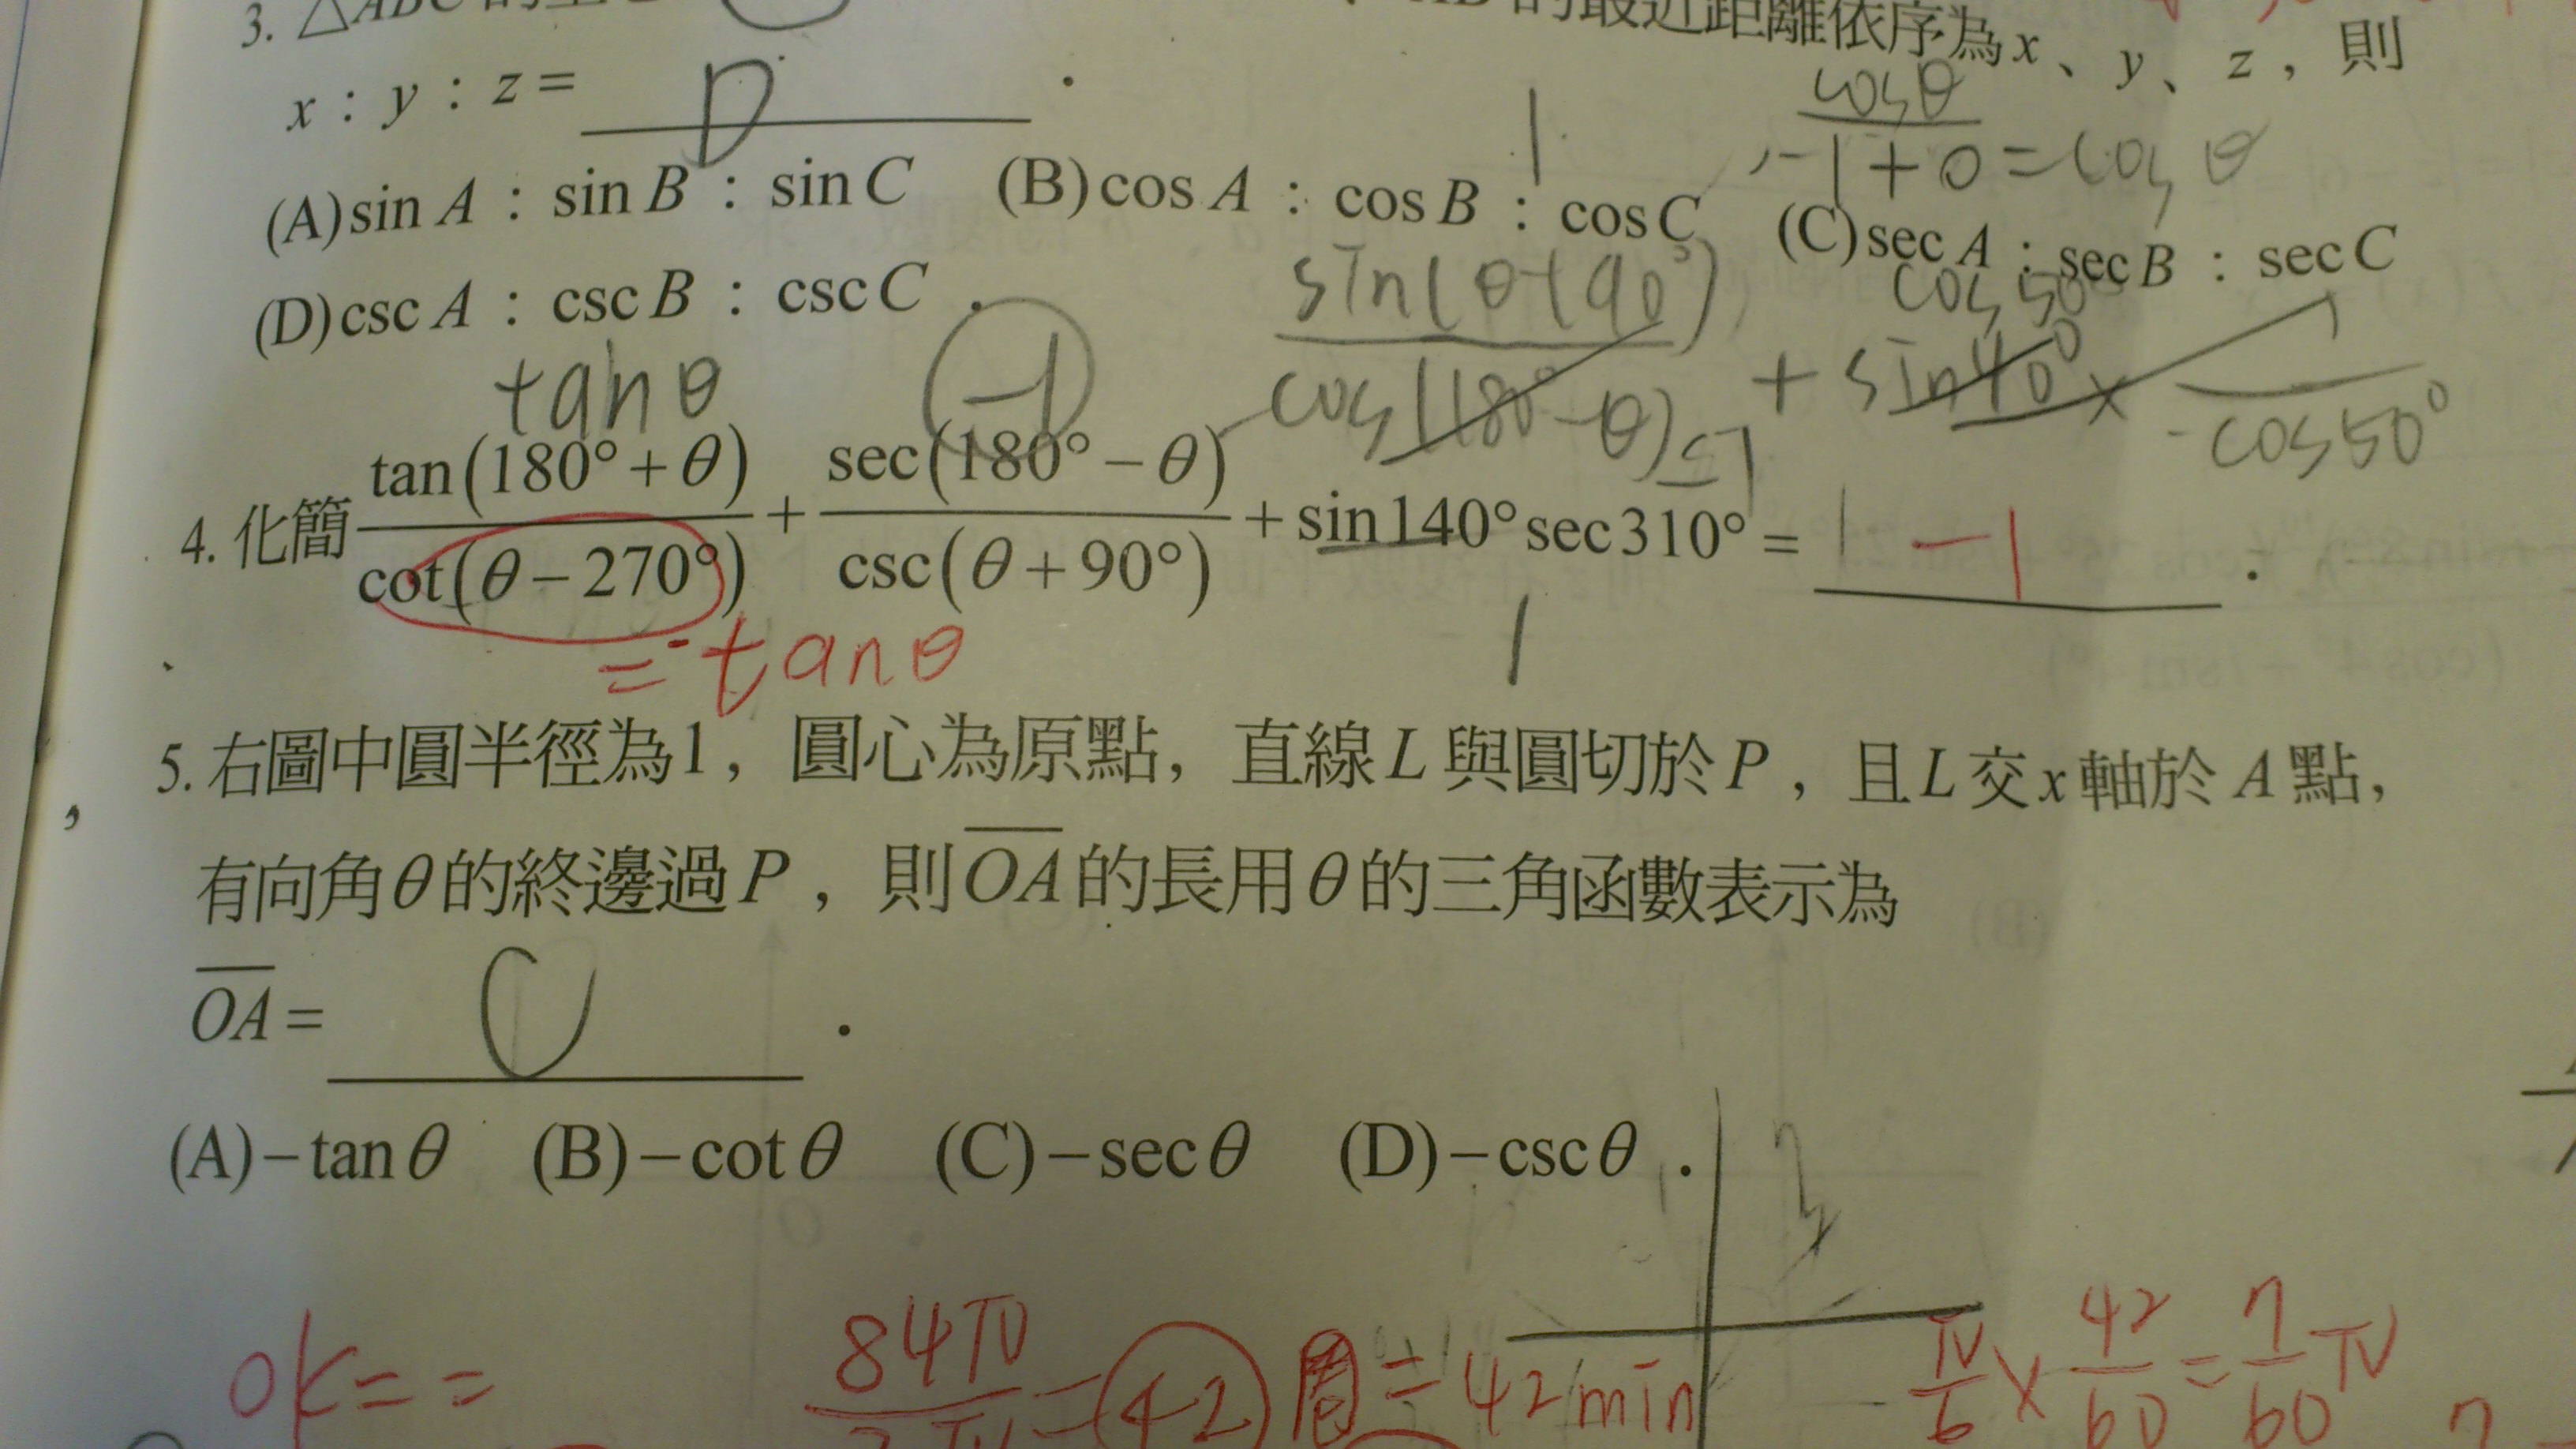 3. △ABC 的
AB 的最近距離依序為 x、y、z，則
x：y：z = D .
cosθ
-1+0=cosθ
(A) sin A：sin B：sin C (B) cos A：cos B：cos C (C) sec A：sec B：sec C
(D) csc A：csc B：csc C .
sin(θ+90°)
cos50°
cos(180°-θ)
+ sin40° × 1
cos50°
tanθ
-1
4. 化簡 tan(180°+θ)/cot(θ-270°) + sec(180°-θ)/csc(θ+90°) + sin140°sec310° = 1 -1 .
=-tanθ
1
5. 右圖中圓半徑為1，圓心為原點，直線 L 與圓切於 P，且 L 交 x 軸於 A 點，
有向角θ的終邊過 P，則 OA 的長用θ的三角函數表示為
OA = C .
(A)-tanθ (B)-cotθ (C)-secθ (D)-cscθ .
OK==
84π/2π=42 周=42min
π/6×42/60=7/60π